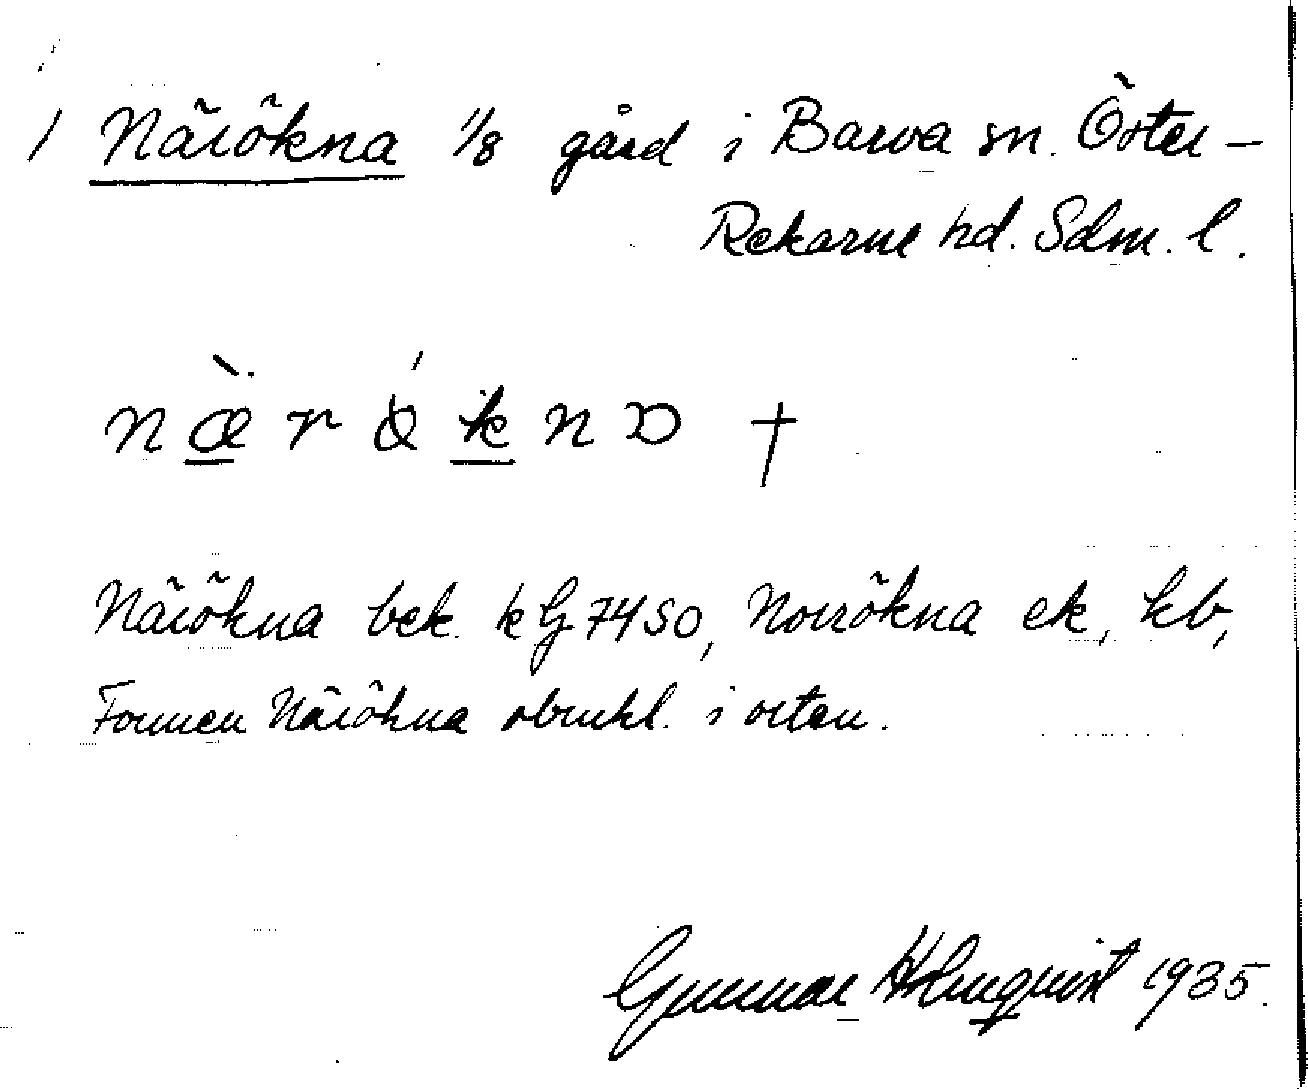 / Närökna 1/8 gård i Barva sn. Öster-
Rekarne hd. Sdm. l.
Närökna bek. k G 7450, Norrökna ek, kb,
Formen Närökna obrukl. i orten.
Gunnar Holmquist 1935.